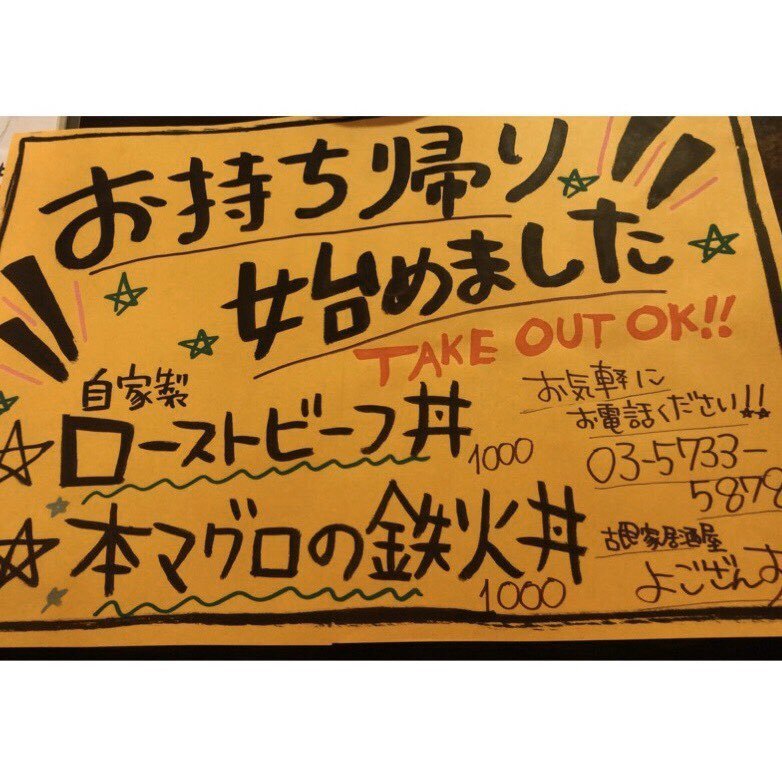 お持ち帰り
始めました
TAKE OUT OK!!
自家製
ローストビーフ丼 1000
本マグロの鉄火丼 1000
お気軽に
お電話ください!!
03-5733-
5879
古民家居酒屋
よござんす